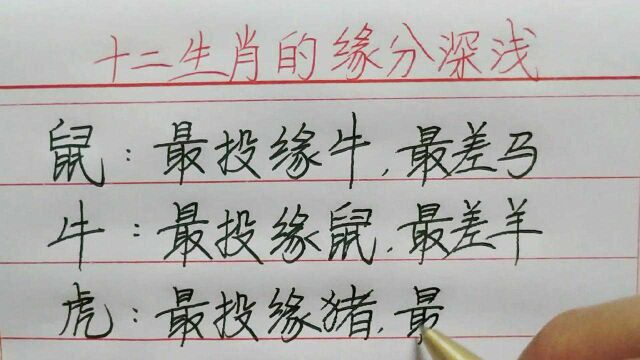 十二生肖的缘分深浅
鼠：最投缘牛，最差马
牛：最投缘鼠，最差羊
虎：最投缘猪，最